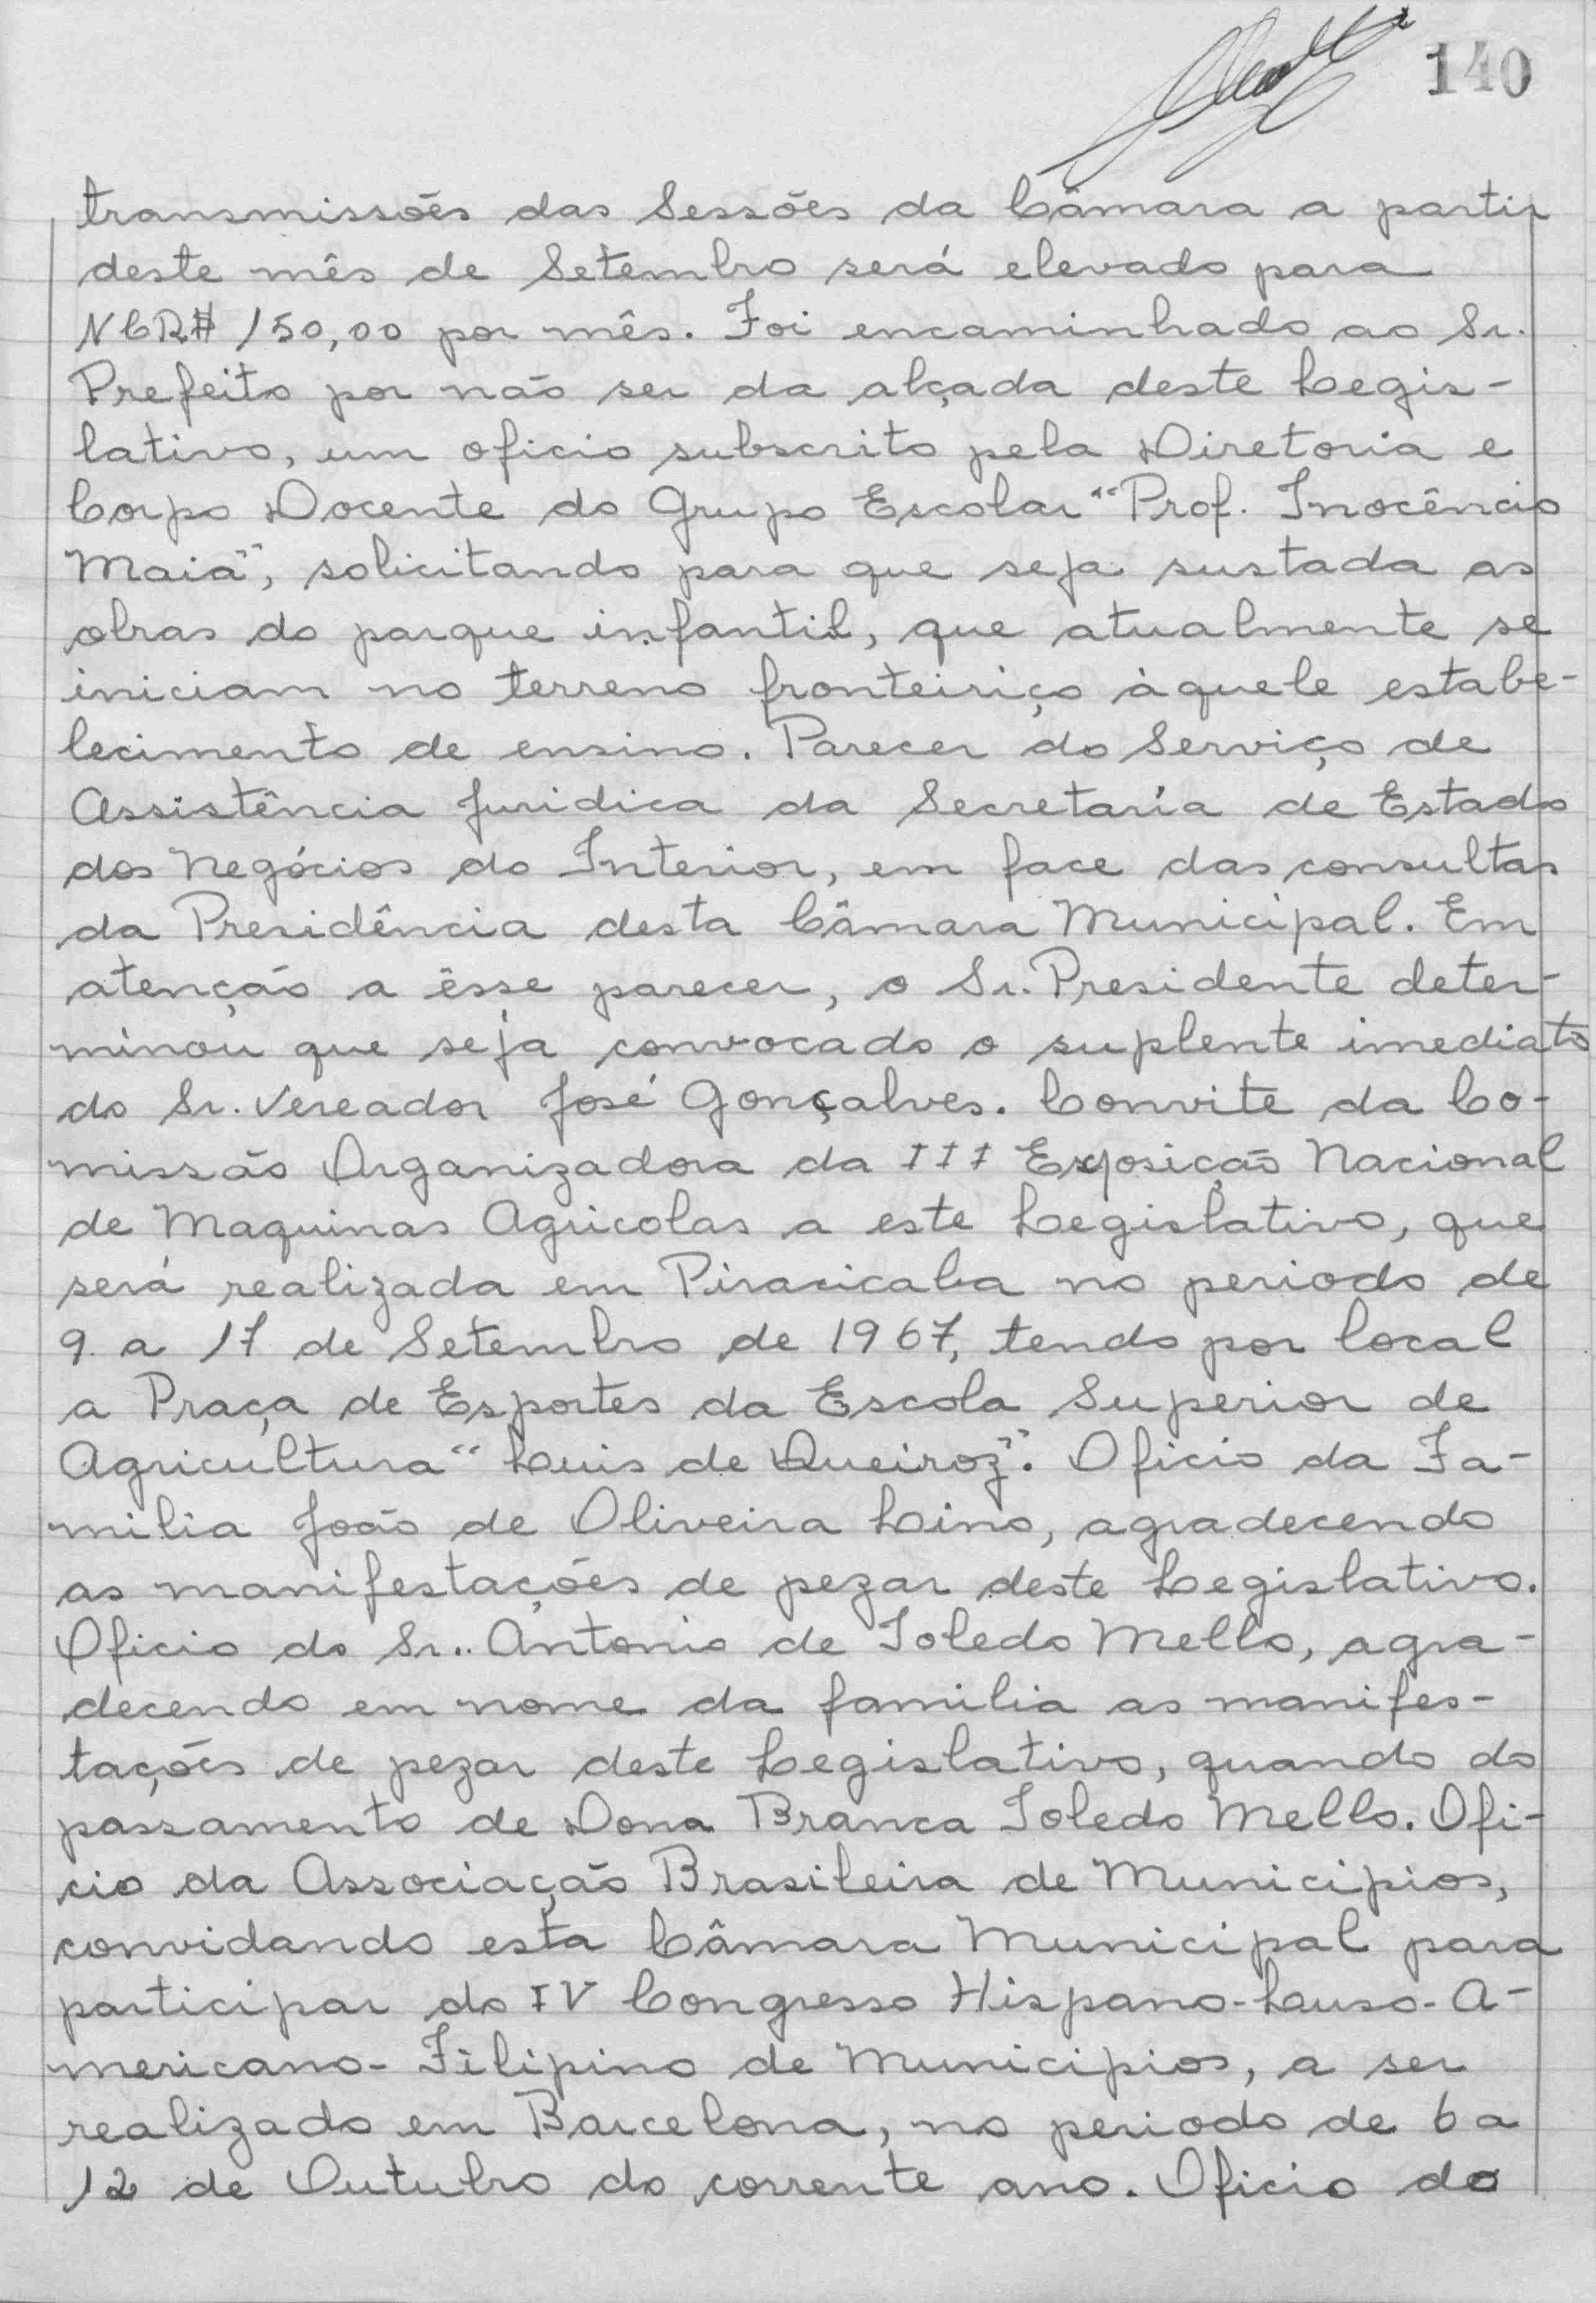 140
transmissões das Sessões da Câmara a partir
deste mês de Setembro será elevado para
NCR$ 150,00 por mês. Foi encaminhado ao Sr.
Prefeito por não ser da alçada deste Legis-
lativo, um oficio subscrito pela Diretoria e
Corpo Docente do Grupo Escolar "Prof. Inocêncio
Maia", solicitando para que seja sustada as
obras do parque infantil, que atualmente se
iniciam no terreno fronteiriço àquele estabe-
lecimento de ensino. Parecer do Serviço de
Assistência Juridica da Secretaria de Estado
dos Negócios do Interior, em face das consultas
da Presidência desta Câmara Municipal. Em
atenção a êsse parecer, o Sr. Presidente deter-
minou que seja convocado o suplente imediato
do Sr. Vereador José Gonçalves. Convite da Co-
missão Organizadora da III Exposição Nacional
de Maquinas Agricolas a este Legislativo, que
será realizada em Piracicaba no periodo de
9 a 17 de Setembro de 1967, tendo por local
a Praça de Esportes da Escola Superior de
Agricultura "Luis de Queiroz". Oficio da Fa-
milia João de Oliveira Lino, agradecendo
as manifestações de pezar deste Legislativo.
Oficio do Sr.. Antonio de Toledo Mello, agra-
decendo em nome da familia as manifes-
tações de pezar deste Legislativo, quando do
passamento de Dona Branca Toledo Mello. Ofi-
cio da Associação Brasileira de Municipios,
convidando esta Câmara Municipal para
participar do IV Congresso Hispano-Luso-A-
mericano-Filipino de Municipios, a ser
realizado em Barcelona, no periodo de 6 a
12 de Outubro do corrente ano. Oficio do